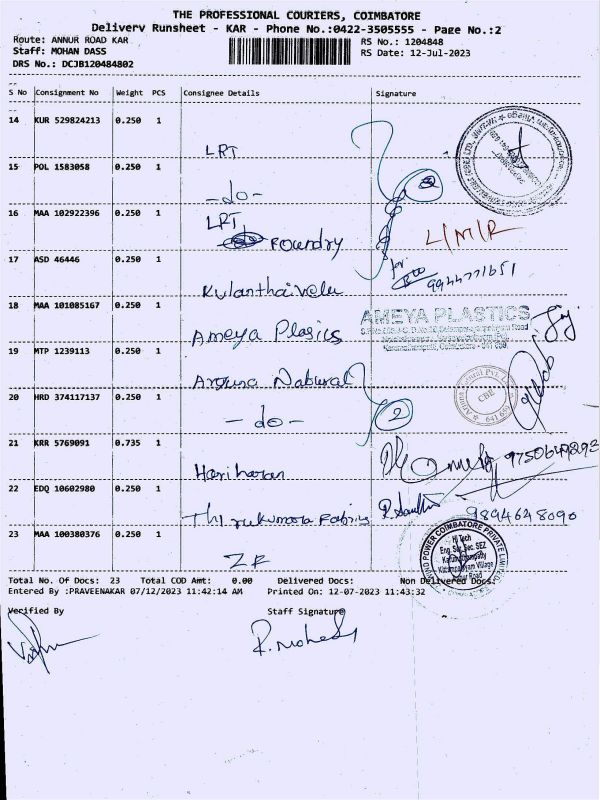 THE PROFESSIONAL COURIERS, COIMBATORE
Delivery Runsheet - KAR - Phone No.:0422-3505555 - Page No.:2
Route: ANNUR ROAD KAR
RS No.: 1204848
Staff: MOHAN DASS
RS Date: 12-Jul-2023
DRS No.: DCJB120484802
S No Consignment No Weight PCS Consignee Details Signature
14 KUR 529824213 0.250 1
LRT
15 POL 1583058 0.250 1
-do-
16 MAA 102922396 0.250 1
LRT
Foundry
L/M/R
17 ASD 46446 0.250 1
for
9944771651
Kulanthaivelu
18 MAA 101085167 0.250 1
AMEYA PLASTICS
Ameya Plasics
19 MTP 1239113 0.250 1
Arjuna Natural
CBE
20 HRD 374117137 0.250 1
-do-
2
21 KRR 5769091 0.735 1
9750649292
Hariharan
22 EDQ 10602980 0.250 1
Thirukumara Fabrics
9894648090
23 MAA 100380376 0.250 1
ZF
WIND POWER COIMBATORE PRIVATE LIMITED
Hi Tech
Eng. Sec. Sec. SEZ
Total No. Of Docs: 23 Total COD Amt: 0.00 Delivered Docs: Non Delivered Docs:
Entered By :PRAVEENAKAR 07/12/2023 11:42:14 AM Printed On: 12-07-2023 11:43:32
Verified By Staff Signature
R. Mohan